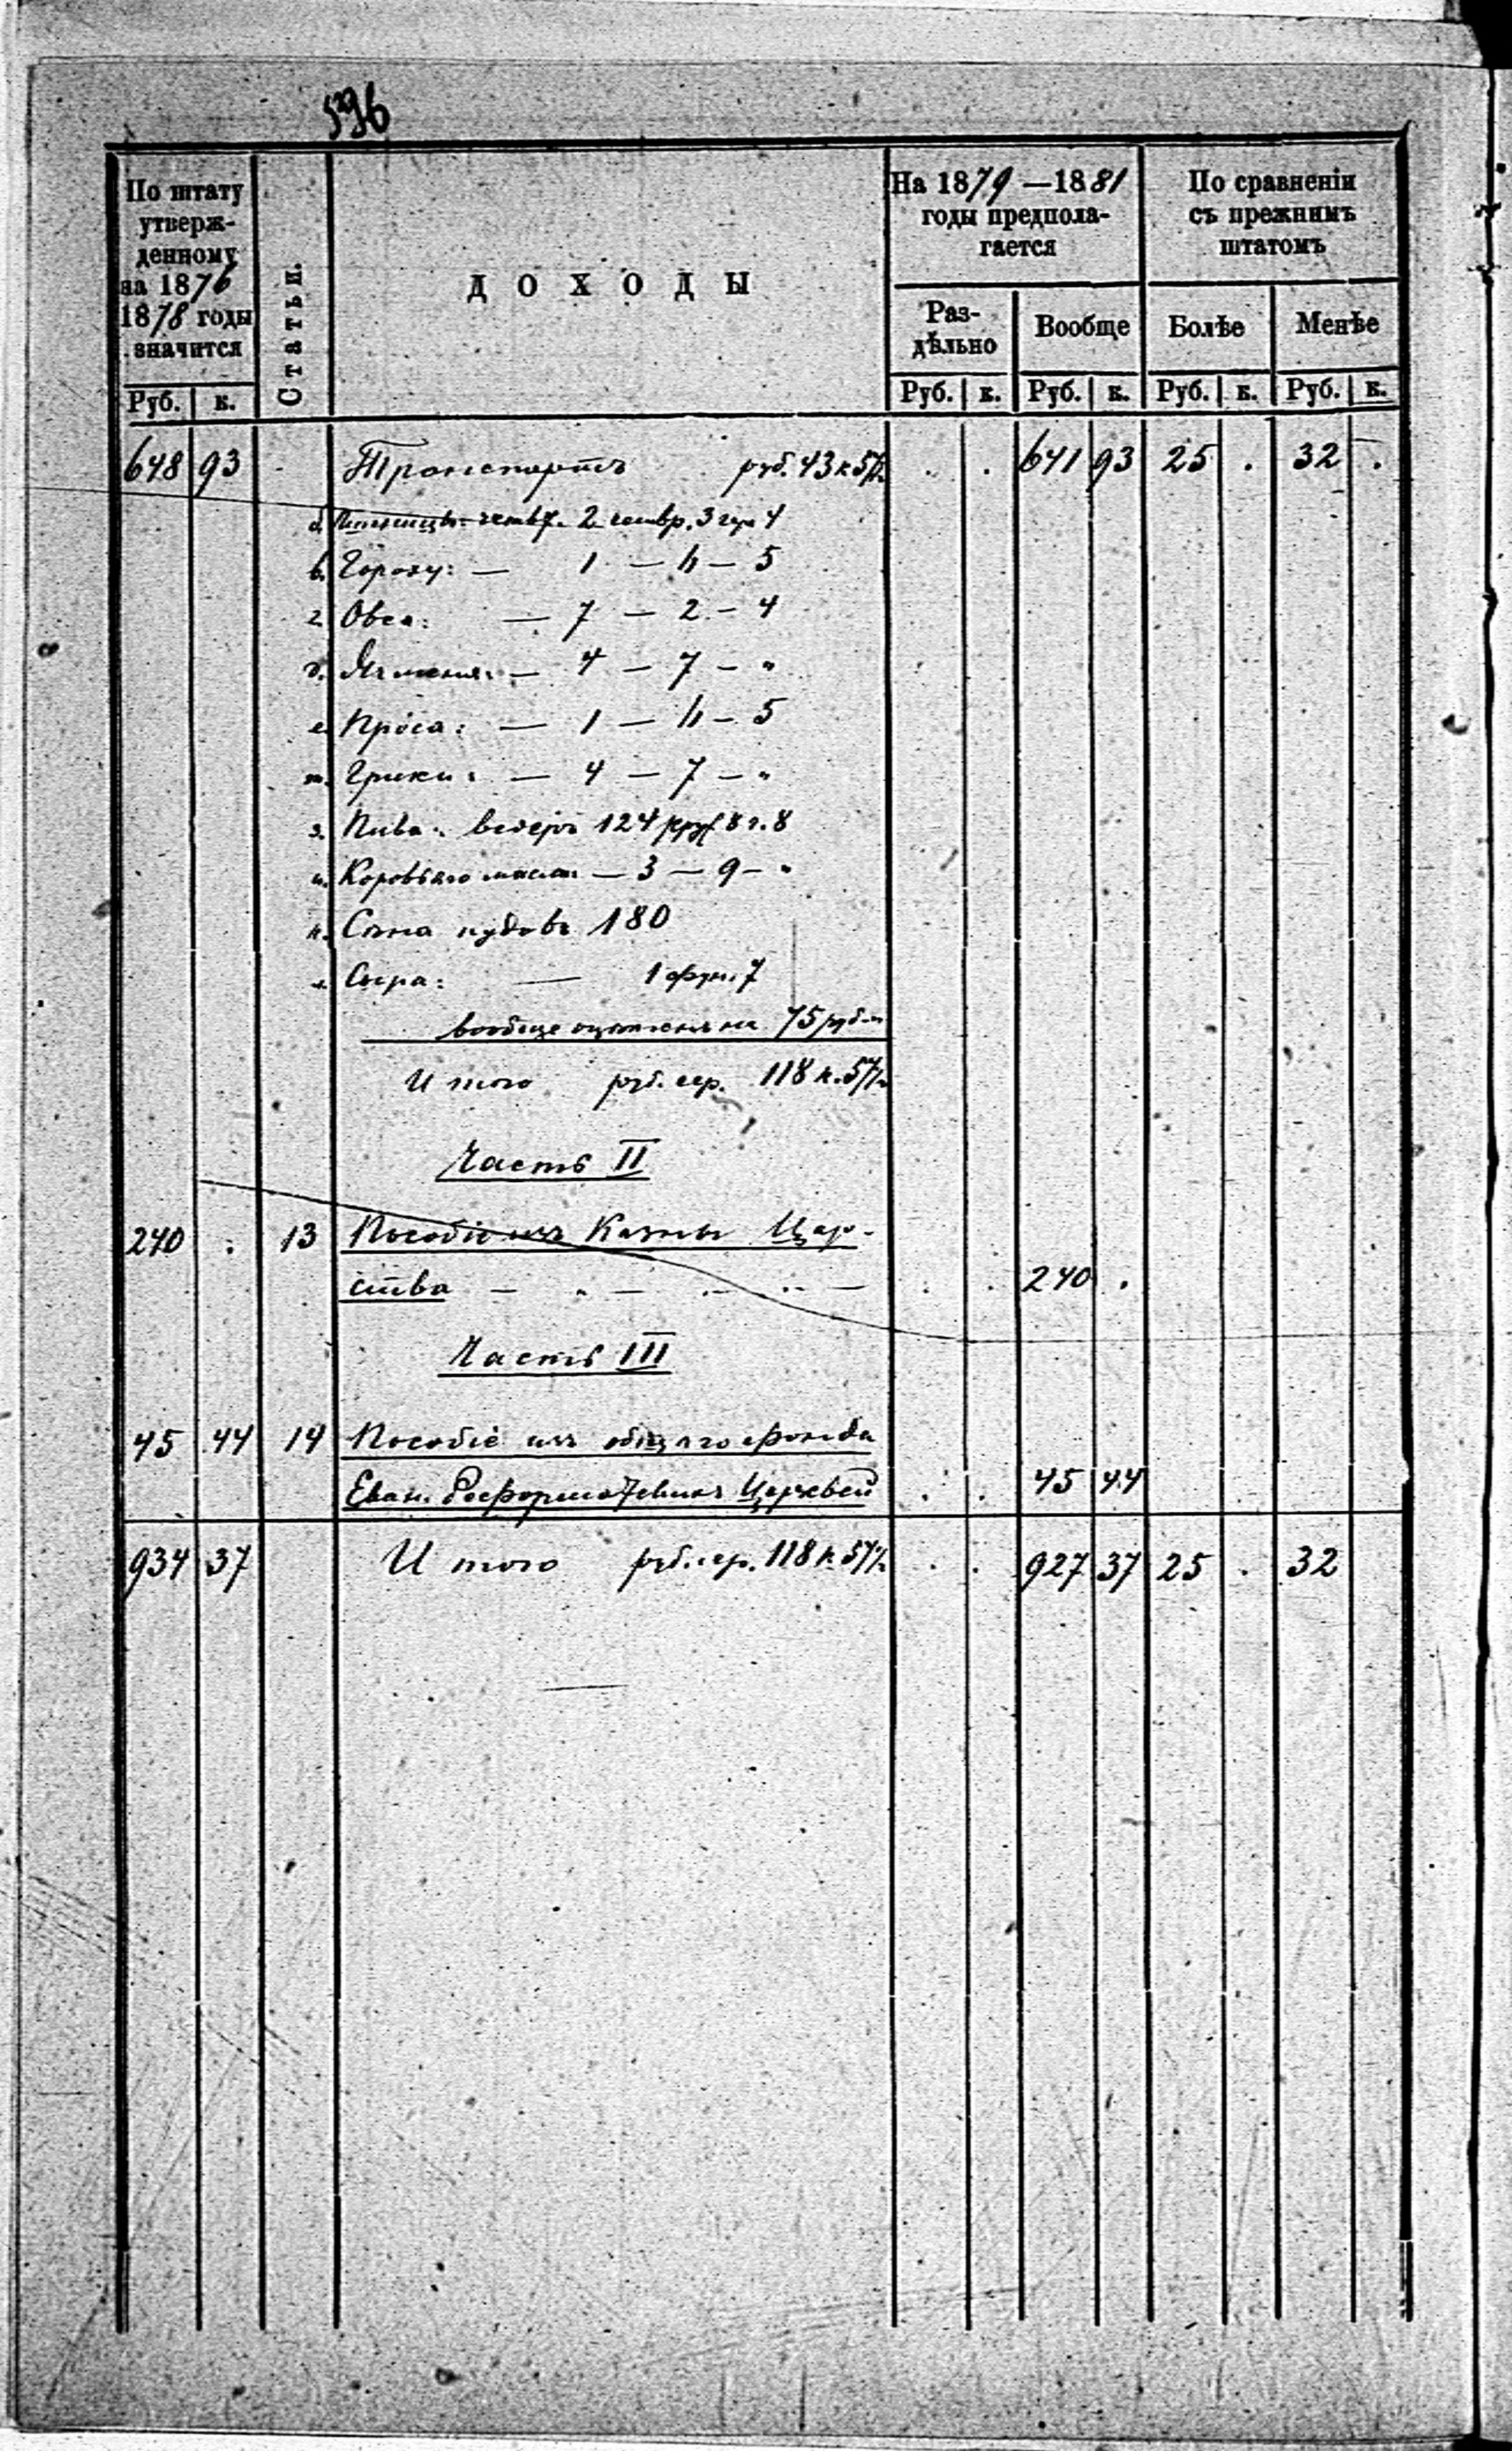 По штату
утверж-
денному
на 1876
1878 годы
значится
Статьи.
ДОХОДЫ
На 1879 — 1881
годы предпола-
гается
По сравненіи
съ прежнимъ
штатомъ
Раз-
дѣльно
Вообще
Болѣе
Менѣе
Руб. к. Руб. к. Руб. к. Руб. к. Руб. к.
648 93 Транспортъ руб. 43 к 57½ . . 641 93 25 . 32 .
Пшеницы: четв. 2 четвр. 3 гар 4
в. Гороху: — 1 — 4 — 5
г. Овса: — 7 — 2 — 4
д. Ячменя: — 4 — 7 — "
е. Проса: — 1 — 4 — 5
ж. Грики: — 4 — 7 — "
з. Пива: ведеръ 124 круж 8 г. 8
и. Коровьяго масла — 3 — 9 — "
к. Сѣна пудовъ 180
л. Сыра: — 1 фун. 7
вообще оцѣнены на 75 руб.
Итого руб. сер. 118 к. 57½
Часть II
240 . 13 Пособіе изъ Казны Цар-
ства — " — . . 240 .
Часть III
45 44 14 Пособіе изъ общаго фонда
Еван. Реформатскихъ Церквей . . 45 44
934 37 Итого руб. сер. 118 к. 57½ . . 927 37 25 . 32